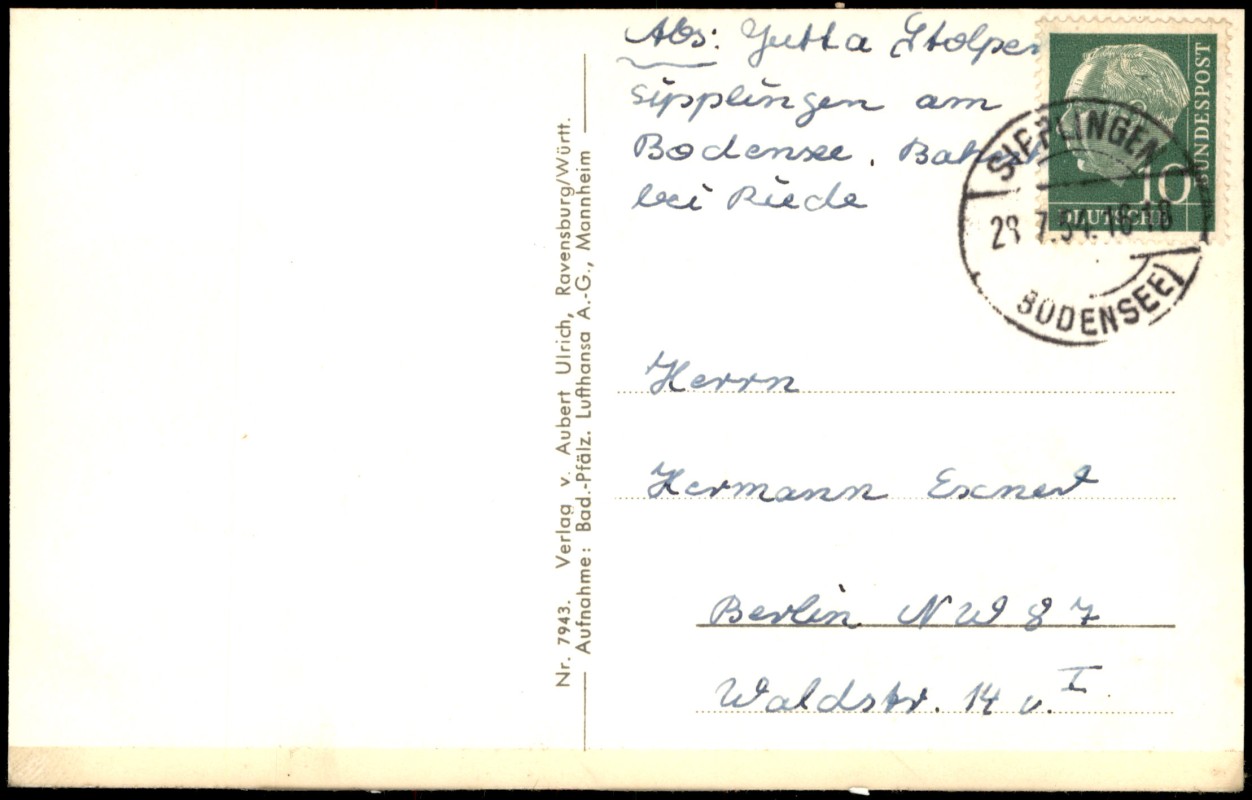 Abs: Jutta Stolper
Sipplingen am
Bodensee.
bei Riede
Herrn
Hermann Exnert
Berlin NW 87
Waldstr. 14 v. I
Nr. 7943. Verlag v. Aubert Ulrich, Ravensburg/Württ.
Aufnahme: Bad.-Pfälz. Lufthansa A.-G., Mannheim
BUNDESPOST
10
DEUTSCHE
SIPPLINGEN
29.7.54.16-18
BODENSEE